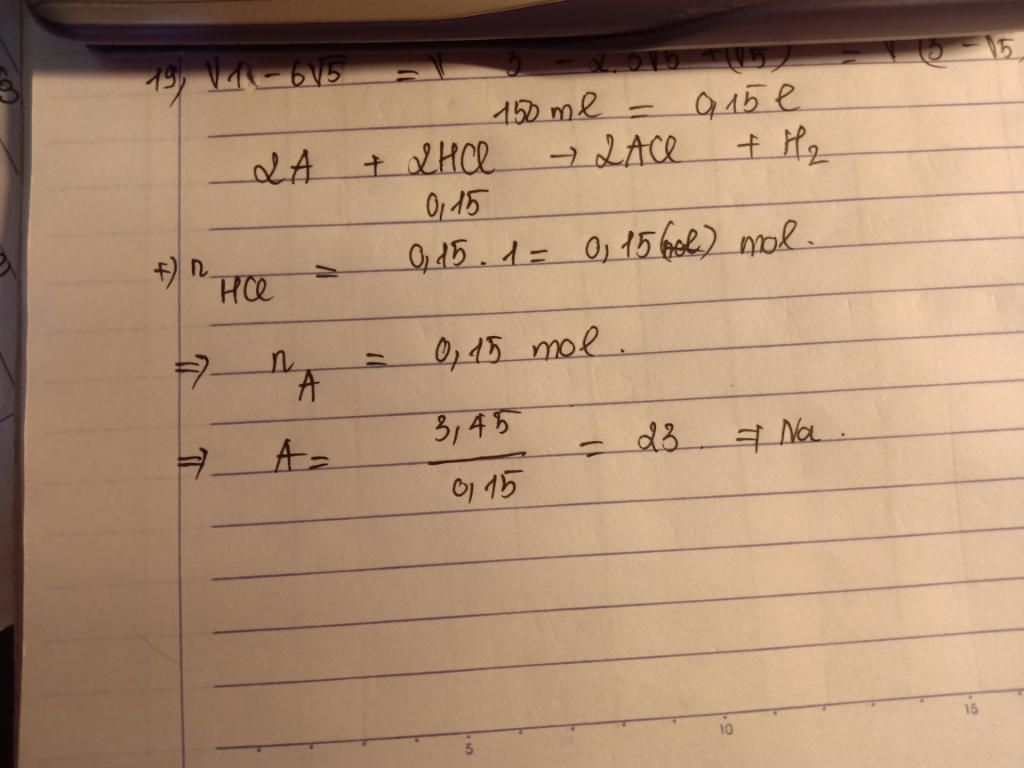 19, √14 - 6√5 = √ 3 - 2.3√5 + (√5) = √(3 - √5
150 ml = 0,15 l
2A + 2HCl → 2ACl + H2
0,15
+) n HCl = 0,15 . 1 = 0,15 (mol) mol.
⇒ n A = 0,15 mol.
⇒ A = 3,45 / 0,15 = 23 ⇒ Na.
5 10 15